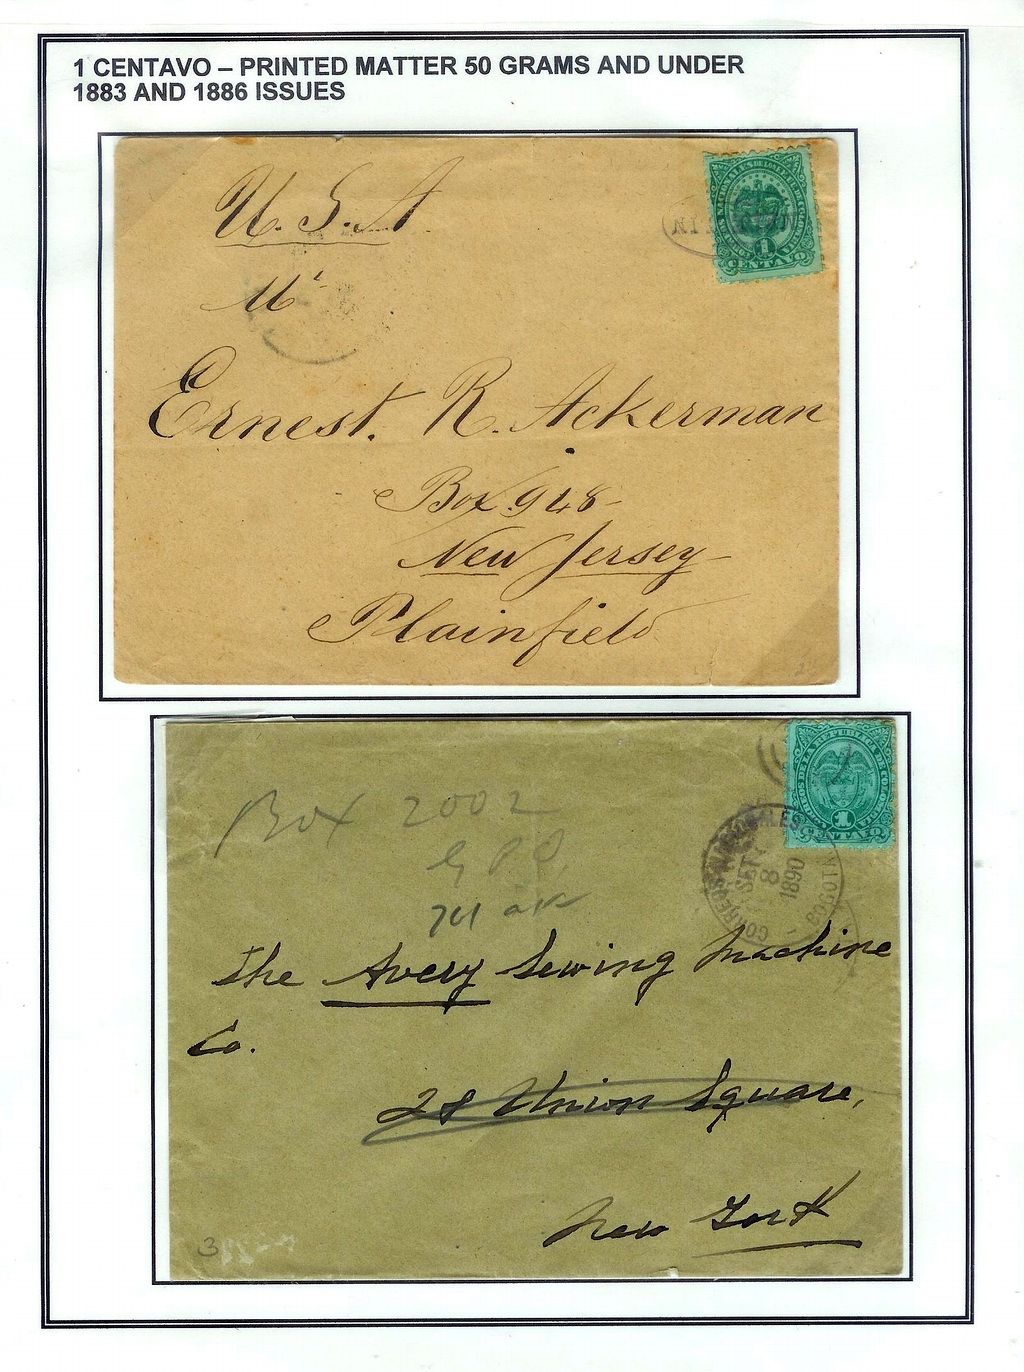 1 CENTAVO – PRINTED MATTER 50 GRAMS AND UNDER
1883 AND 1886 ISSUES
U.S.A
Mr
Ernest. R. Ackerman
Box 948
New Jersey
Plainfield
1
Box 2002
The Avery Sewing Machine
Co.
28 Union Square,
New York
3
CORREOS NACIONALES
SET
8
1890
BOGOTA
CORREOS DE LA REPUBLICA DE COLOMBIA
1